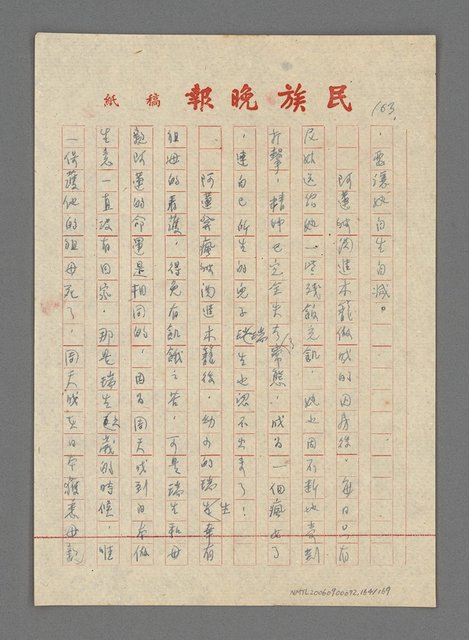 民族晚報 稿紙
163.
，要讓她自生自滅。
阿蓮被關進木籠做成的囚房後，每日只有
反奴送給她一些殘飯充飢，她也因不斷地受刺
打擊，精神已完全失了常態，成為一個瘋女了
，連自己所生的兒子瑞生也認不出來了！
阿蓮發瘋被關進木籠後，幼小的瑞生幸有
祖母的看護，得免有飢餓之苦，可是瑞生和母
親阿蓮的命運是相同的，因為周天成到日本做
生意一直沒有回家，那是瑞生歲的時候，唯
一保護他的祖母死了，周天成在日本獲悉母親
NMTL20060900692.164/169